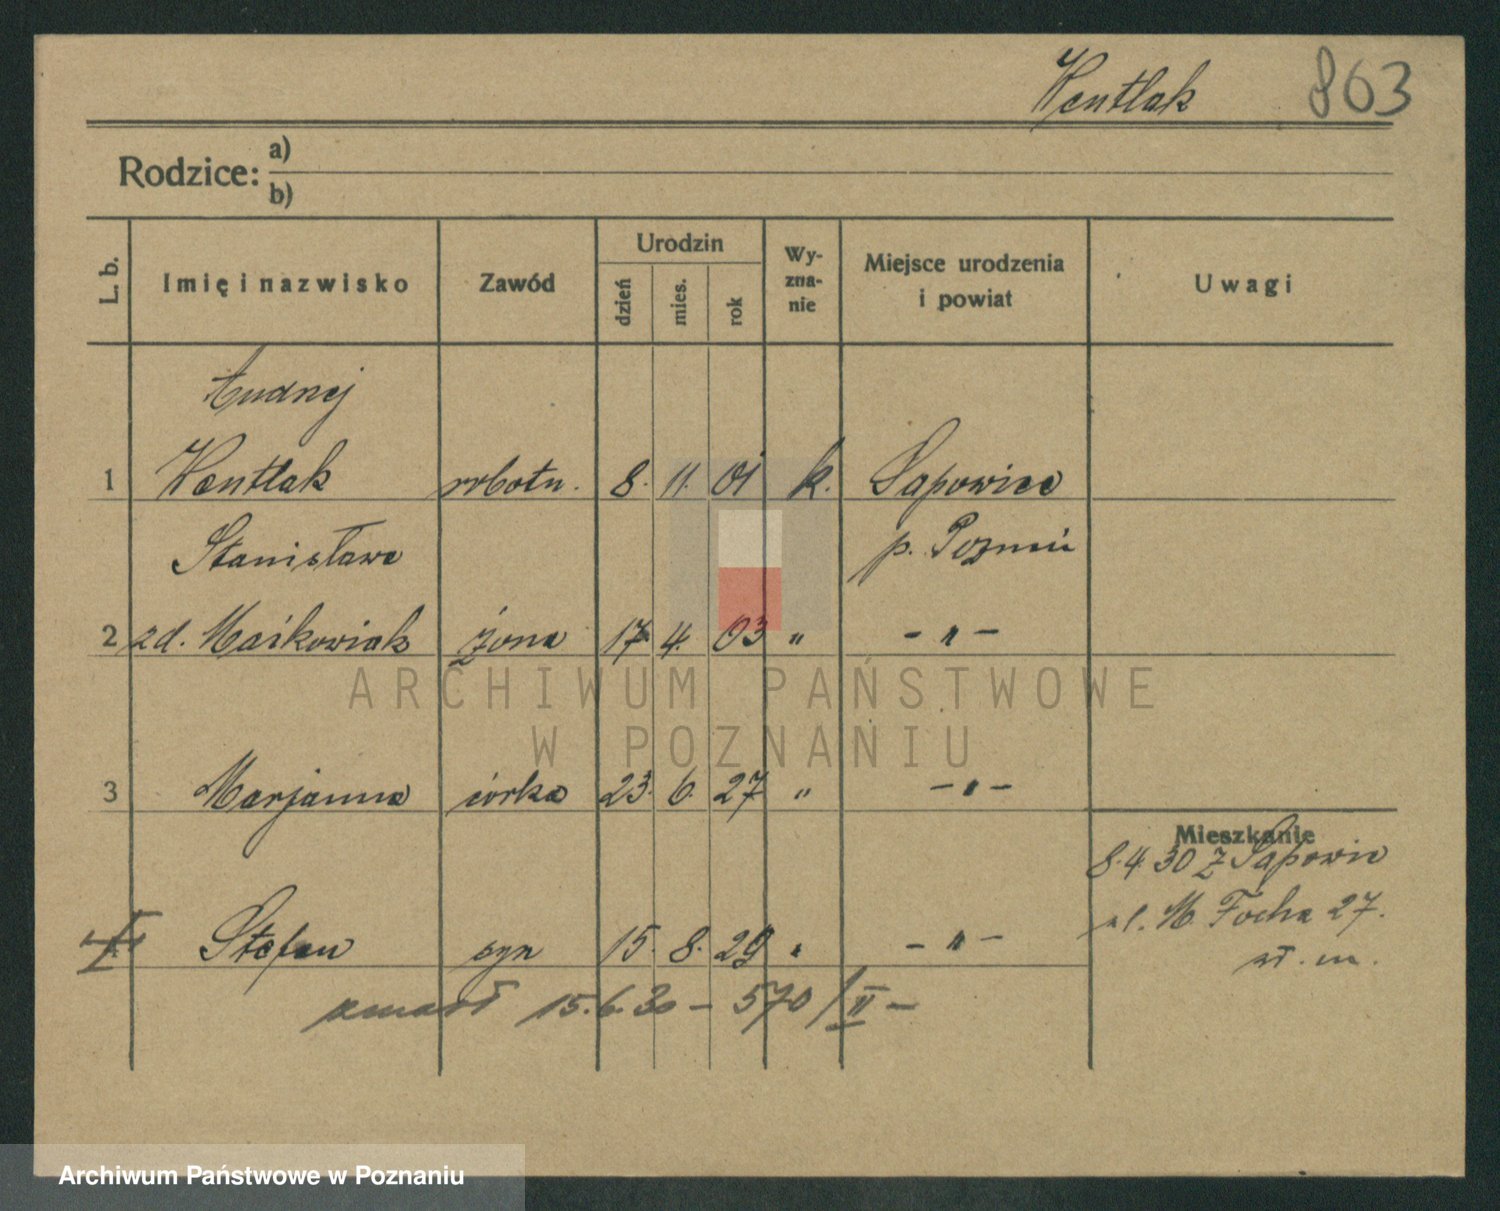 Wentlak 863
Rodzice: a)
b)
L. b. Imię i nazwisko Zawód Urodzin dzień mies. rok Wyzna-nie Miejsce urodzenia i powiat Uwagi
Andrzej
1 Wentlak robotn. 8. 11. 01 k. Sapowice
Stanisława p. Poznań
2 zd. Maćkowiak żona 17. 4. 03 " - " -
ARCHIWUM PAŃSTWOWE
W POZNANIU
3 Marjanna córka 23. 6. 27 " - " -
Mieszkanie
8.4.30 z Sapowic
ul. M. Focha 27.
Stefan syn 15. 8. 29 " - " -
wł. m.
zmarł 15.6.30 - 570/II -
Archiwum Państwowe w Poznaniu